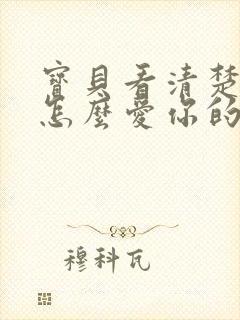 寶貝看清楚
怎麼愛你的
穆科瓦